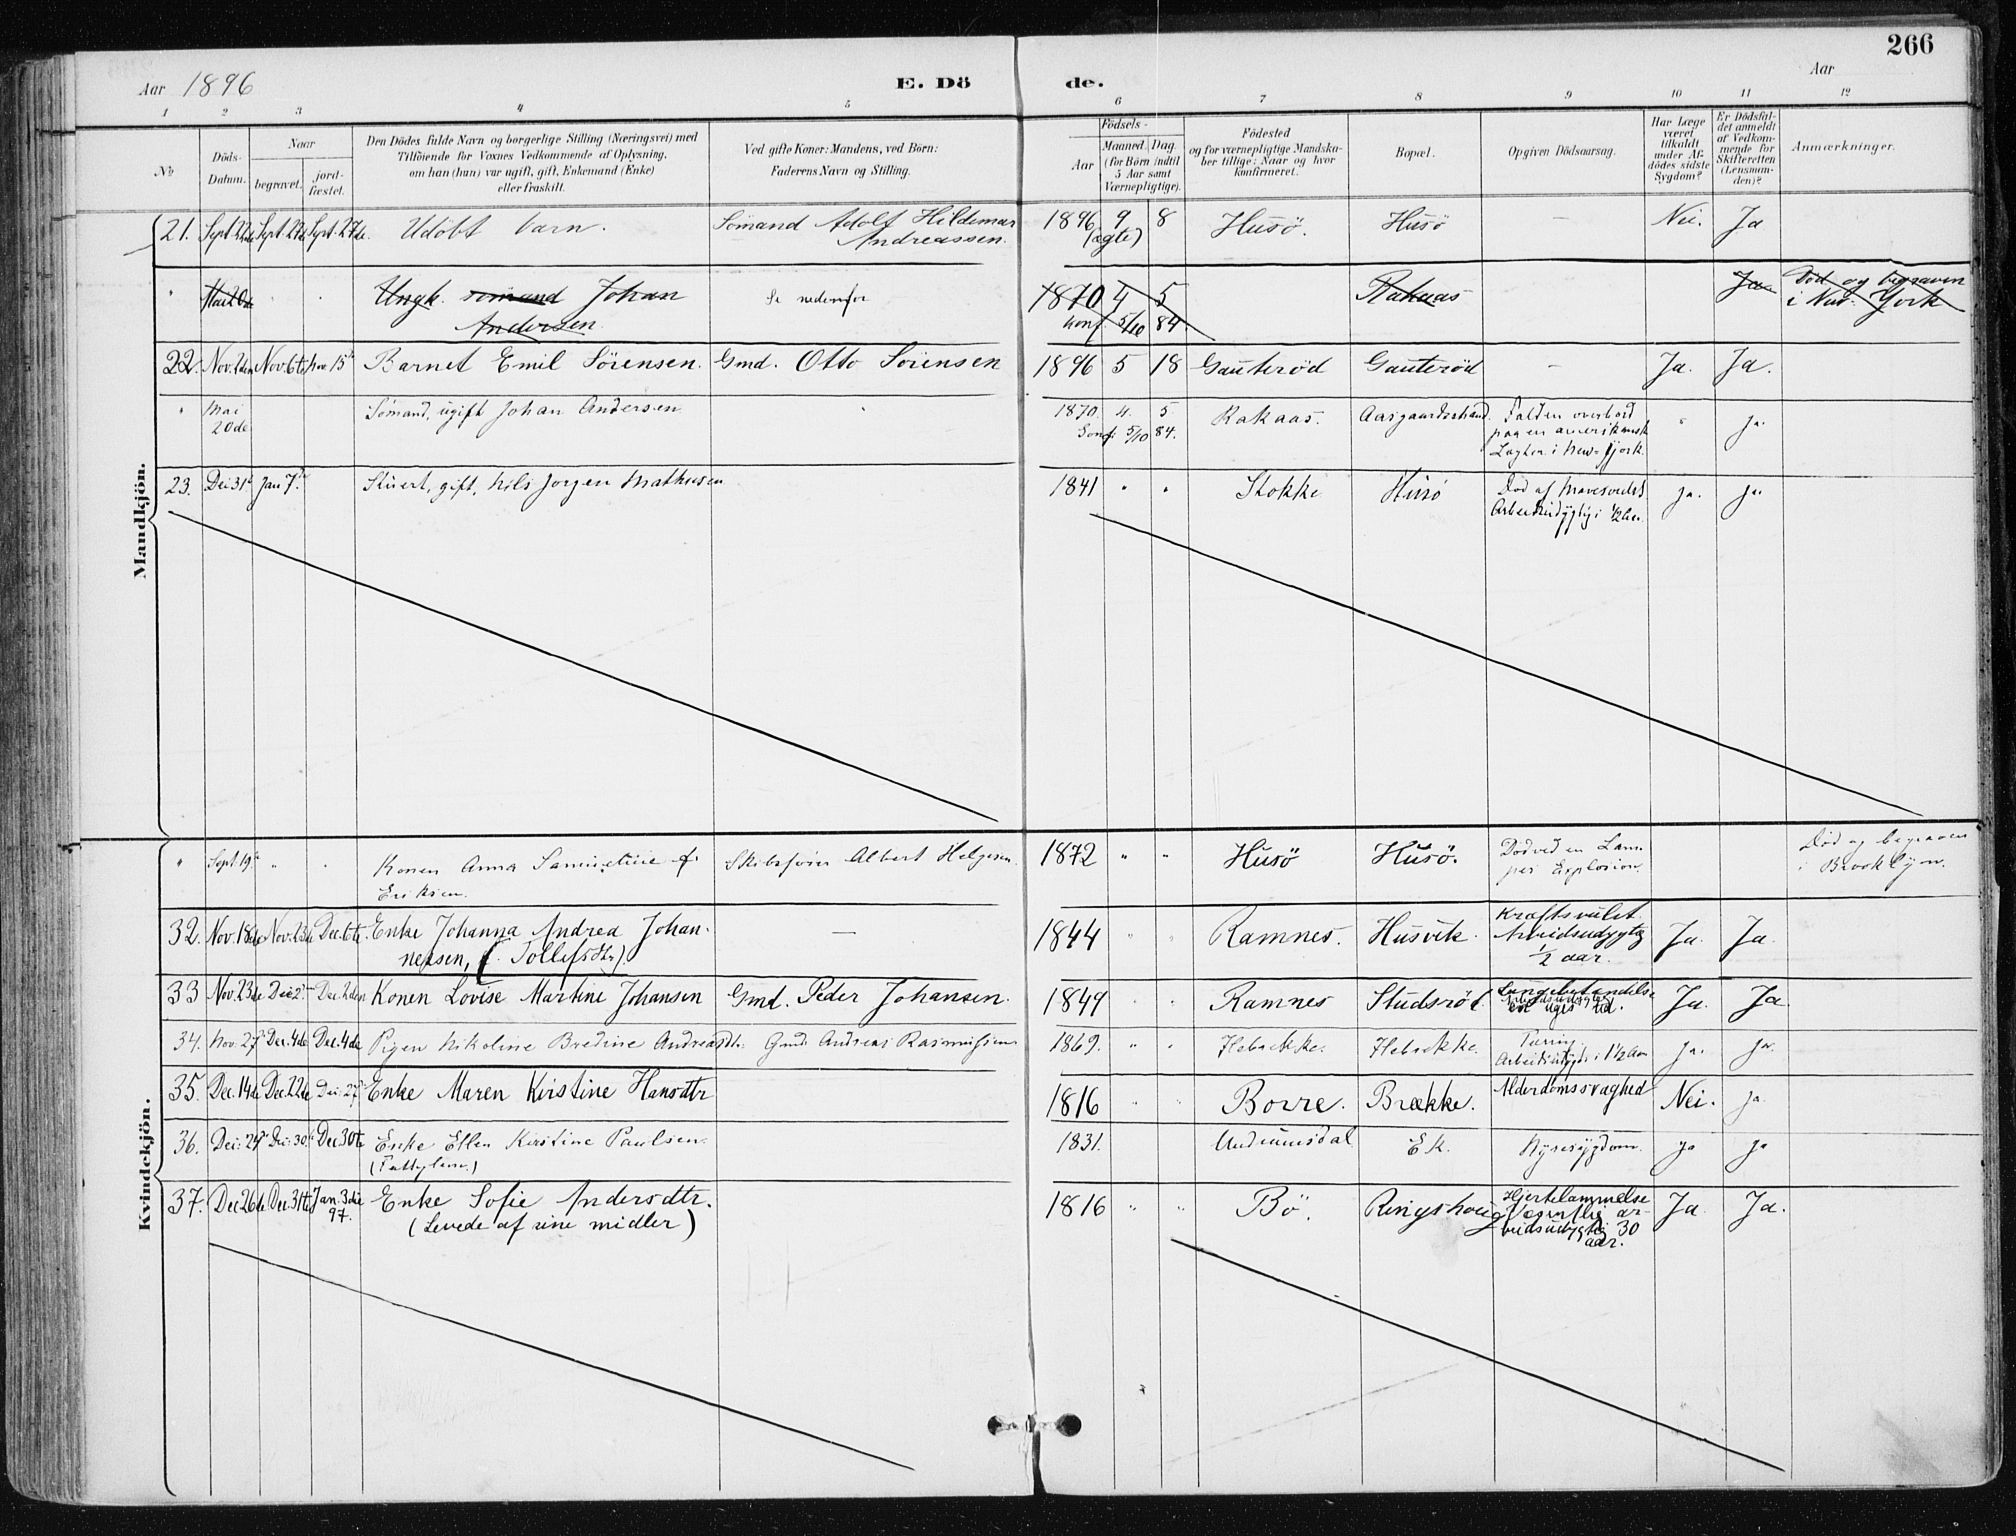 266
Aar 1896
E. Dö de.
Aar
1 2 3 4 5 6 7 8 9 10 11 12
No
Döds-Datum.
Naar
begravet.
jordfæstet.
Den Dödes fulde Navn og borgerlige Stilling (Næringsvei) med
Tilföiende for Voxnes Vedkommende af Oplysning,
om han (hun) var ugift, gift, Enkemand (Enke)
eller fraskilt.
Ved gifte Koner: Mandens, ved Börn:
Faderens Navn og Stilling.
Födsels-
Aar
Maaned. Dag
(for Börn indtil
5 Aar samt
Værnepligtige).
Födested
og for værnepligtige Mandskaber
tillige: Naar og hvor
konfirmeret.
Bopæl.
Opgiven Dödsaarsag.
Har Læge
været
tilkaldt
under Afdödes
sidste
Sygdom?
Er Dödsfaldet
anmeldt
af Vedkommende
for
Skifteretten
(Lensmanden)?
Anmærkninger.
Mandkjön.
21. Sept. 22de Sept. 27de Sept. 27de. Udöbt barn. Sömand Adolf Hildemar 1896 9 8 Husö. Husö — Nei. Ja
Andreassen. (ægte)
" Mai 20de " " Ungk. sömand Johan Se nedenfor 1870 4 5 Rakaas Ja. Död og begraven
Andersen. konf. 5/10 84 i New-York
22. Nov. 2den Nov. 6te Nov. 15de Barnet Emil Sörensen. Gmd. Otto Sörensen 1896 5 18 Gauteröd Gauteröd — Ja. Ja.
" Mai Sömand, ugift Johan Andersen. 1870. 4. 5 Rakaas. Aasgaardsstrand. Falden overbord " ja.
20de Konf: 5/10 84. paa en amerikansk
Lugter i New-Jork.
23. Dec: 31te Jan 7de Stuert, gift, Nils Jörgen Mathiesen 1841 " " Stokke Husö Död af Mavesvulst ja. ja.
Arbeidsudygtig i 1/2 Aar.
Kvindekjön.
" Sept. 19de " " Konen Anna Saminetine f. Skibsförer Albert Helgesen. 1872 " " Husö Husö. Död ved en Lam- Död og begraven
Eriksen. pes Explosion. i Brooklyn.
32. Nov. 18de Nov. 23de Dec. 6te. Enke Johanna Andrea Johan- — 1844 " " Ramnes. Husvik. Kraftsvulst. Ja. Ja.
nessen, (f. Tollefsdtr). Arbeidsudygtig
1/2 aar.
33 Nov. 23de Dec 2den Dec. 2den Konen Lovise Martine Johansen Gmd. Peder Johansen. 1849 " " Ramnes Studsröd. Lungebetændelse Ja. Ja
34. Nov: 27de Dec. 4de Dec. 4de Pigen Nikoline Bredine Andreasdtr. Gmd: Andreas Rasmussen 1869. " " Hebække. Hebække. Tæring ja. ja.
Arbeidsudygtig i 1 1/2 Aar
35. Dec. 14de Dec. 22de Dec: 27de Enke Maren Kristine Hansdtr 1816 " " Borre. Brække. Alderdomssvaghed Nei. ja.
36. Dec: 24de Dec: 30te Dec. 30te Enke Ellen Kirstine Paulsen. 1831. Undrumsdal Ek. Nyresygdom. ja ja
(Fattiglem.)
37. Dec. 26de Dec. 31te Jan. 3die Enke Sofie Andersdtr. 1816 " " Bö. Ringshoug Hjertelammelse Ja Ja.
97. (Levede af sine midler) Væsentlig ar-
beidsudygtig 30
aar.